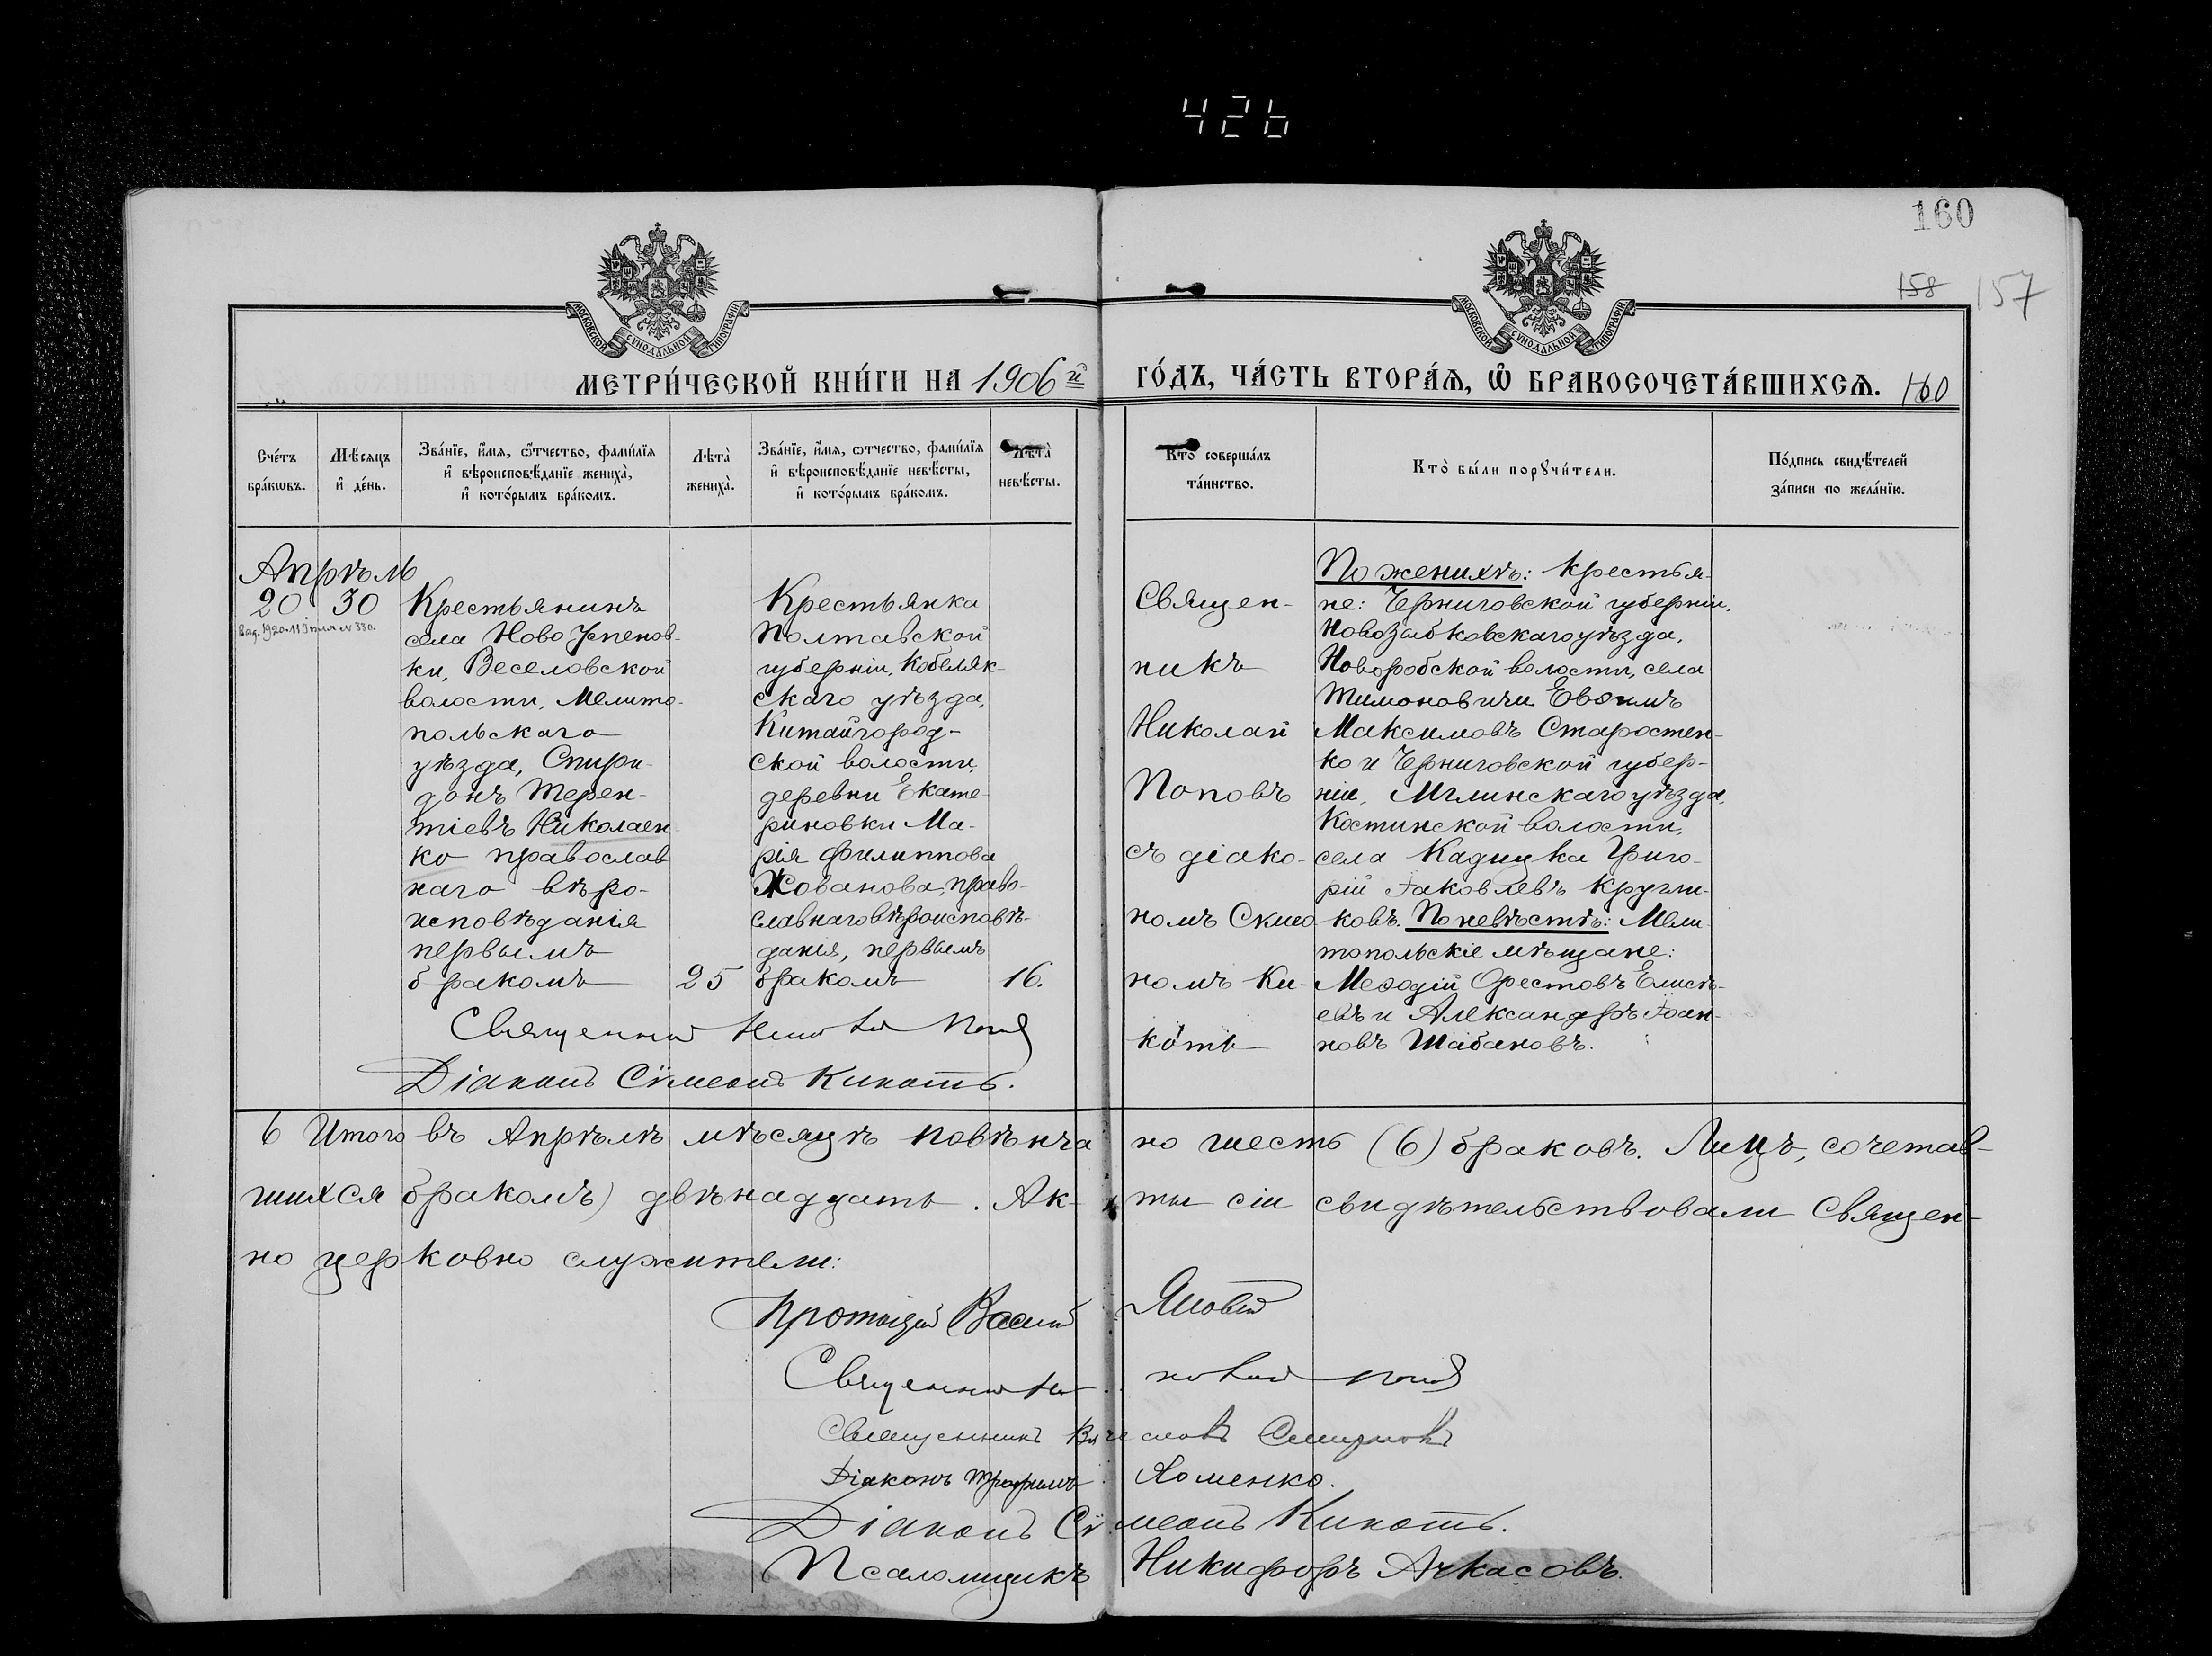 426
160
158 157
МОСКОВСКОЙ СѴНОДАЛЬНОЙ ТИПОГРАФІИ
МОСКОВСКОЙ СѴНОДАЛЬНОЙ ТИПОГРАФІИ
МЕТРИ́ЧЕСКОЙ КНИ́ГИ НА 1906й ГО́ДЪ, ЧА́СТЬ ВТОРА́Ѧ, Ѡ҆ БРАКОСОЧЕТА́ВШИХСѦ. 160
Сче́тъ бра́кѡвъ.
Мѣ́сѧцъ и҆ де́нь.
Зва́нїе, и҆́мѧ, ѻ҆́тчество, фамѝлїѧ и҆ вѣроисповѣ́данїе жениха̀, и҆ кото́рымъ бра́комъ.
Лѣта̀ жениха̀.
Зва́нїе, и҆́мѧ, ѻ҆́тчество, фамѝлїѧ и҆ вѣроисповѣ́данїе невѣ́сты, и҆ кото́рымъ бра́комъ.
Лѣта̀ невѣ́сты.
Кто̀ соверша́лъ та́инство.
Кто̀ бы́ли порꙋчи́тели.
По́дпись свидѣ́телей за́писи по жела́нїю.
Апрѣль
20 30
Крестьянинъ
села Ново Успенов-
ки, Веселовской
волости, Мелито-
польскаго
уѣзда, Спири-
донъ Терен-
тіевъ Николаен-
ко православ
наго вѣро-
исповѣданія
первымъ
бракомъ 25
Крестьянка
Полтавской
губерніи, Кобеляк-
скаго уѣзда,
Китайгород-
ской волости,
деревни Екате-
риновки Ма-
рія Филиппова
Жованова, право-
славнаго вѣроисповѣ-
данія, первымъ
бракомъ 16.
Священ-
никъ
Николай
Поповъ
съ діако-
номъ Симео
номъ Ки-
котъ
По женихѣ: крестья-
не: Черниговской губерніи,
Новозыбковскаго уѣзда,
Новоробской волости, села
Тимоновичи Евѳимъ
Максимовъ Старостен-
ко и Черниговской губер-
ніи, Мглинскаго уѣзда,
Костинской волости,
села Кадецка Григо-
рій Іаковлевъ Кругли-
ковъ. По невѣстѣ: Мели-
топольскіе мѣщане:
Меѳодій Орестовъ Елисѣ-
евъ и Александръ Іоан-
новъ Шабановъ.
Священникъ Николай Поповъ
Діаконъ Сѵмеонъ Кикоть.
6 Итого въ Апрѣлѣ мѣсяцѣ повѣнча но шесть (6) браковъ. Лицъ, сочетав-
шихся бракомъ) двѣнадцать. Ак- ты сіи свидѣтельствовали Священ-
но церковно служители:
Протоіерей Василій
Священникъ Николай Поповъ
Священникъ Вячеславъ
Діаконъ Трофимъ Хоменко.
Діаконъ Сѵмеонъ Кикоть.
Псаломщикъ Никифоръ Ачкасовъ.